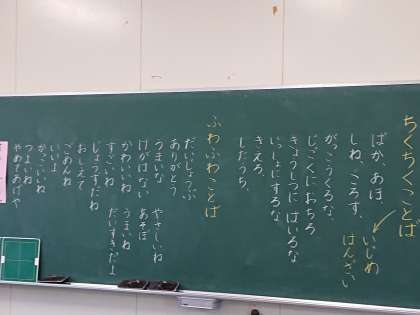 ちくちくことば
ばか、あほ、
しね、ころす、
がっこうくるな、
じごくにおちろ
きょうしつにはいるな
いっしょにするな、
きえろ、
しだっち、
いじめ
はんざい
ふわふわことば
だいじょうぶ
ありがとう
うまいな
けがはない
かわいいね
すごいね
じょうずだね
おしえて
ごめんね
いいよ
かっこいいね
つよいね
やめてあげや
やさしいね
あそぼ
うまいね
だいすきだよ